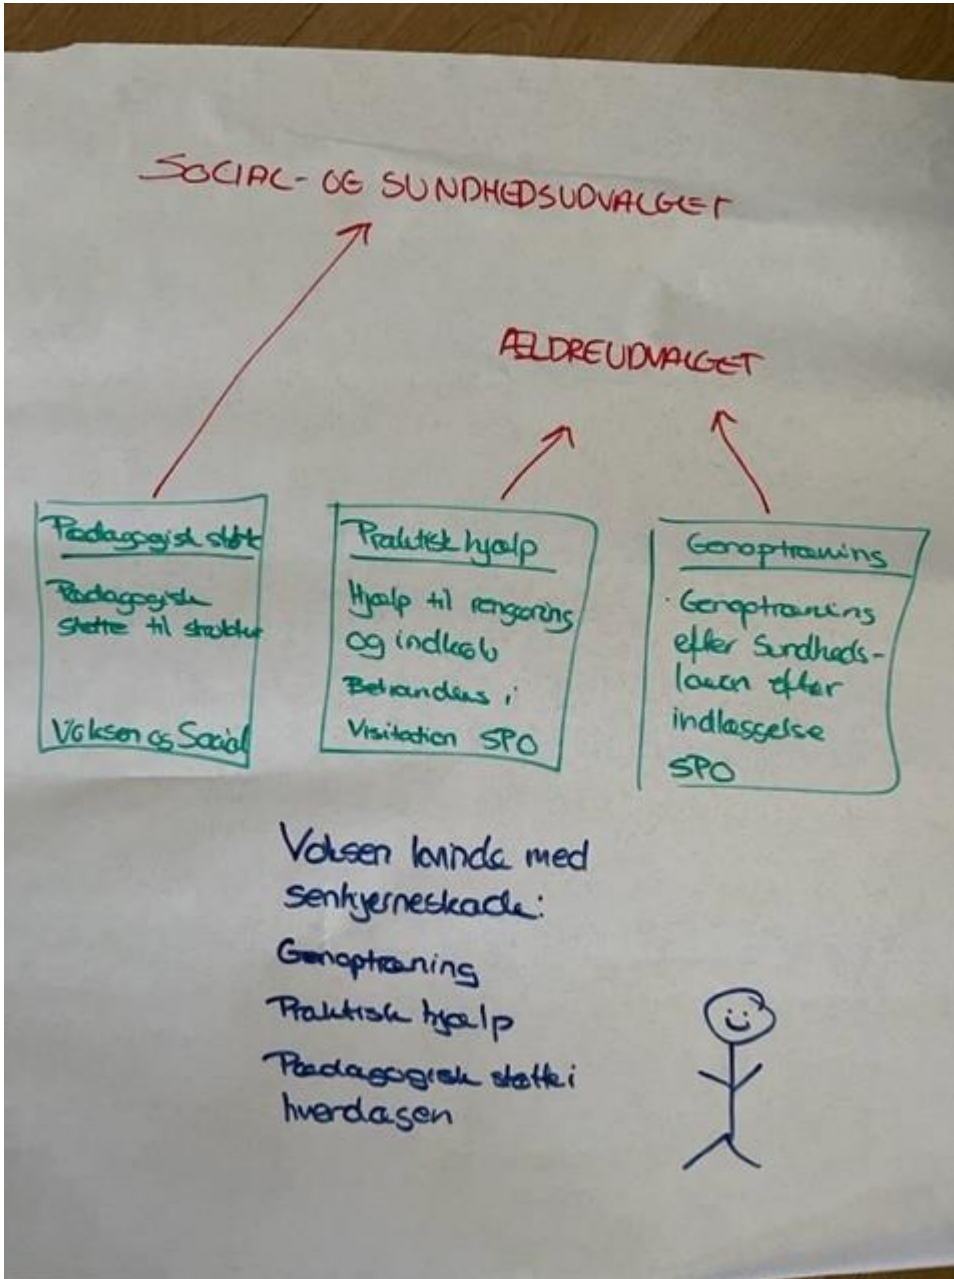 SOCIAL- OG SUNDHEDSUDVALGET
ÆLDREUDVALGET
Pædagogisk støtte
Pædagogisk
støtte til struktur
Voksen og Social
Praktisk hjælp
Hjælp til rengøring
og indkøb
Behandles i
Visitation SPO
Genoptræning
· Genoptræning
efter Sundheds-
loven efter
indlæggelse
SPO
Voksen kvinde med
senhjerneskade:
Genoptræning
Praktisk hjælp
Pædagogisk støtte i
hverdagen